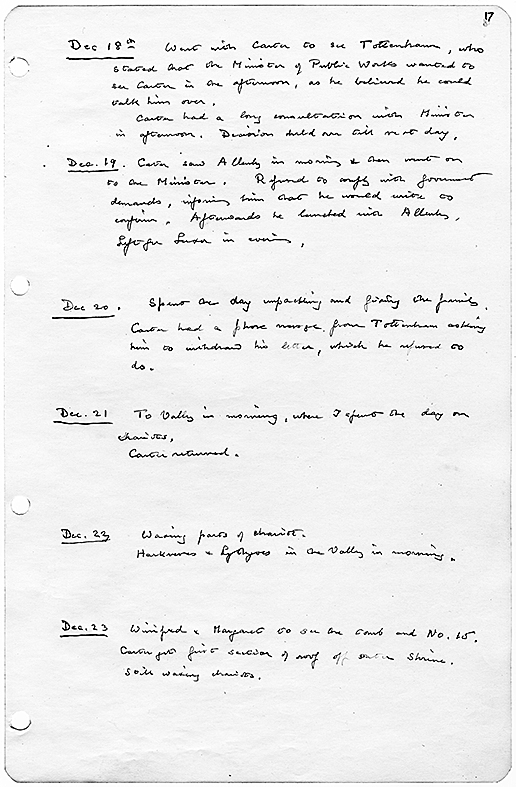 17
Dec 18th Went with Carter to see Tottenham, who
stated that the Minister of Public Works wanted to
see Carter in the afternoon, as he believed he could
talk him over.
Carter had a long consultation with Minister
in afternoon. Decision held over till next day.
Dec. 19. Carter saw Allenby in morning & then went on
to the Minister. Refused to comply with government
demands, informing him that he would write to
confirm. Afterwards he lunched with Allenby.
Left for Luxor in evening.
Dec 20. Spent the day unpacking and fixing the family.
Carter had a phone message from Tottenham asking
him to withdraw his letter, which he refused to
do.
Dec. 21 To Valley in morning, where I spent the day on
chariots.
Carter returned.
Dec. 22 Waxing parts of chariot.
Harkness & Lythgoes in the Valley in morning.
Dec. 23 Winifred & Margaret to see the tomb and No. 15.
Carter got first section of roof off outer shrine.
Still waxing chariots.